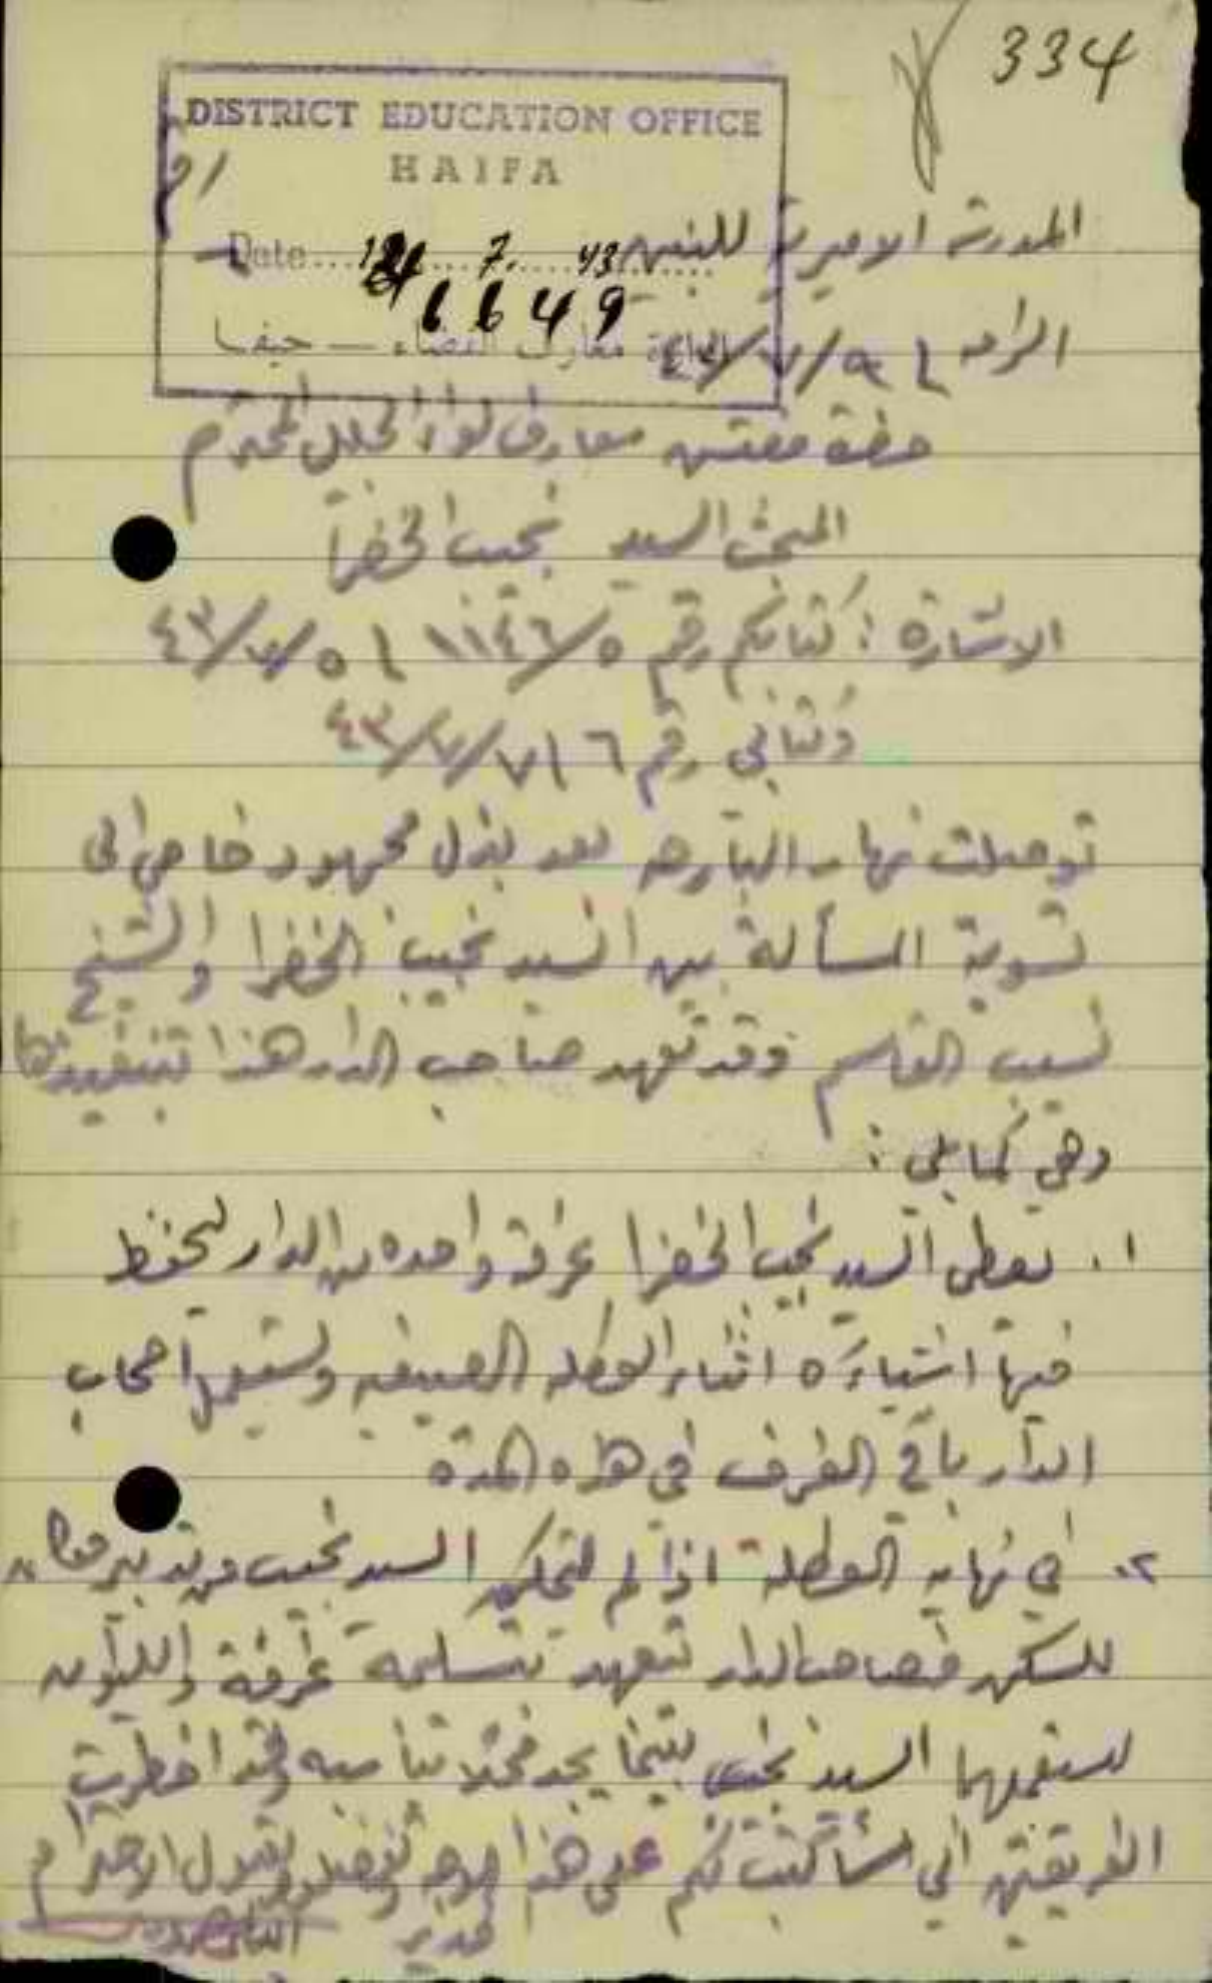 334
DISTRICT EDUCATION OFFICE
HAIFA
Date 12 7. 43
6649
معارف القضاء — حيفا
المدرسة الاميرية للبنين
الرامه ٩/٧/٤٣
حضرة مفتش معارف لواء الجليل المحترم
المبحث السيد نجيب الخضرا
الاشارة : كتابكم رقم ١١٤٦/٥ ٥/٧/٤٣
وكتابي رقم ٦ ٧/٧/٤٣
توصلت نهار البارحه بعد بذل مجهود خاص الى
تسوية المسألة بين السيد نجيب الخضرا والشيخ
نسيب القاسم وقد تعهد صاحب الدار هذا تنفيذها
وهي كما يلي :
١. تعطى السيد نجيب الخضرا غرفة واحده من الدار ليحفظ
فيها اشياءه اثناء العطله الصيفيه ويستعمل اصحاب
الدار باقي الغرف في هذه المدة
٢. في نهاية العطلة اذا لم يتمكن السيد نجيب من تدبير محل
للسكن فصاحب الدار تعهد بتسليمه غرفة والليوان
ليستعملهما السيد نجيب بينما يجد محلا يناسبه وقد اخطرت
الفريقين اني سأكتب لكم على هذا الوجه وتفضلوا بقبول الاحترام
مدير